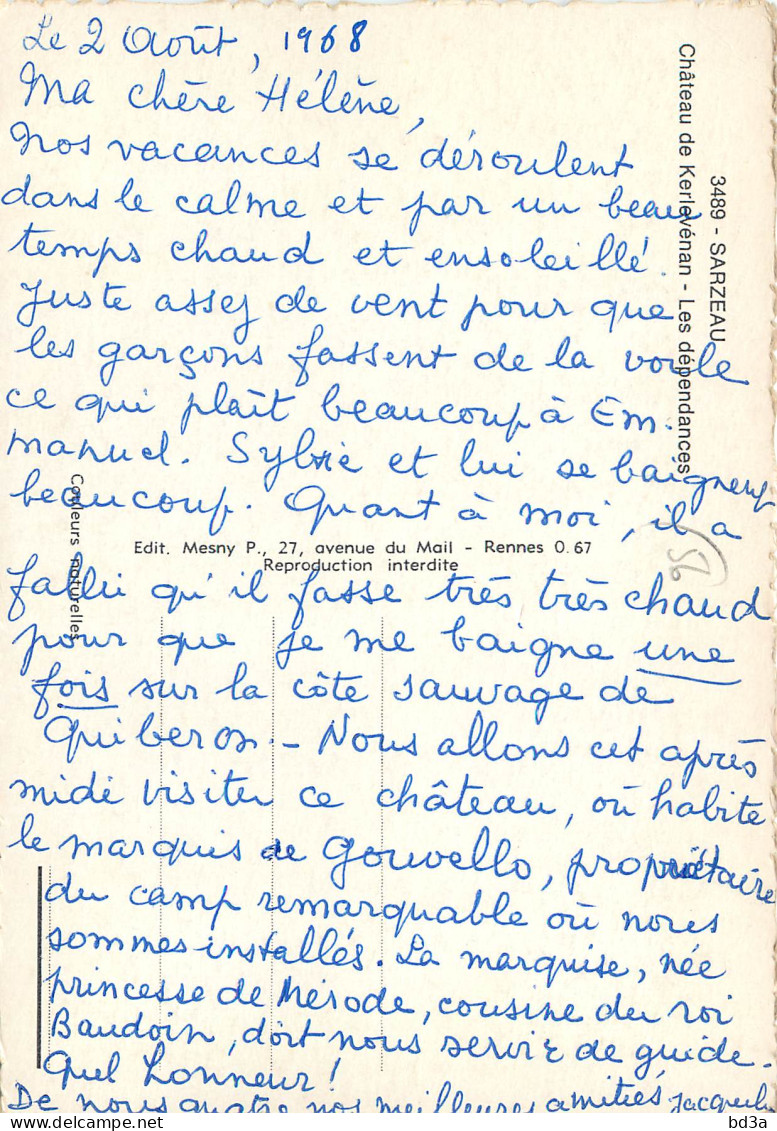 Le 2 Août, 1968
Ma chère Hélène,
Nos vacances se déroulent
dans le calme et par un beau
temps chaud et ensoleillé.
Juste assez de vent pour que
les garçons fassent de la voile
ce qui plaît beaucoup à Em-
manuel. Sylvie et lui se baignent
beaucoup. Quant à moi, il a
fallu qu'il fasse très très chaud
pour que je me baigne une
fois sur la côte sauvage de
Quiberon. - Nous allons cet après
midi visiter ce château, où habite
le marquis de Gouvello, propriétaire
du camp remarquable où nous
sommes installés. La marquise, née
princesse de Mérode, cousine du roi
Baudoin, doit nous servir de guide.
Quel honneur!
De nous quatre nos meilleures amitiés
3489 - SARZEAU
Château de Kerlevénan - Les dépendances
Couleurs naturelles
Edit. Mesny P., 27, avenue du Mail - Rennes 0.67
Reproduction interdite
bd3a